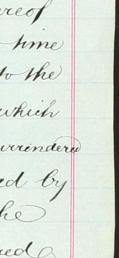 ereof
time
to the
which
urrendered
ed by
he
ed